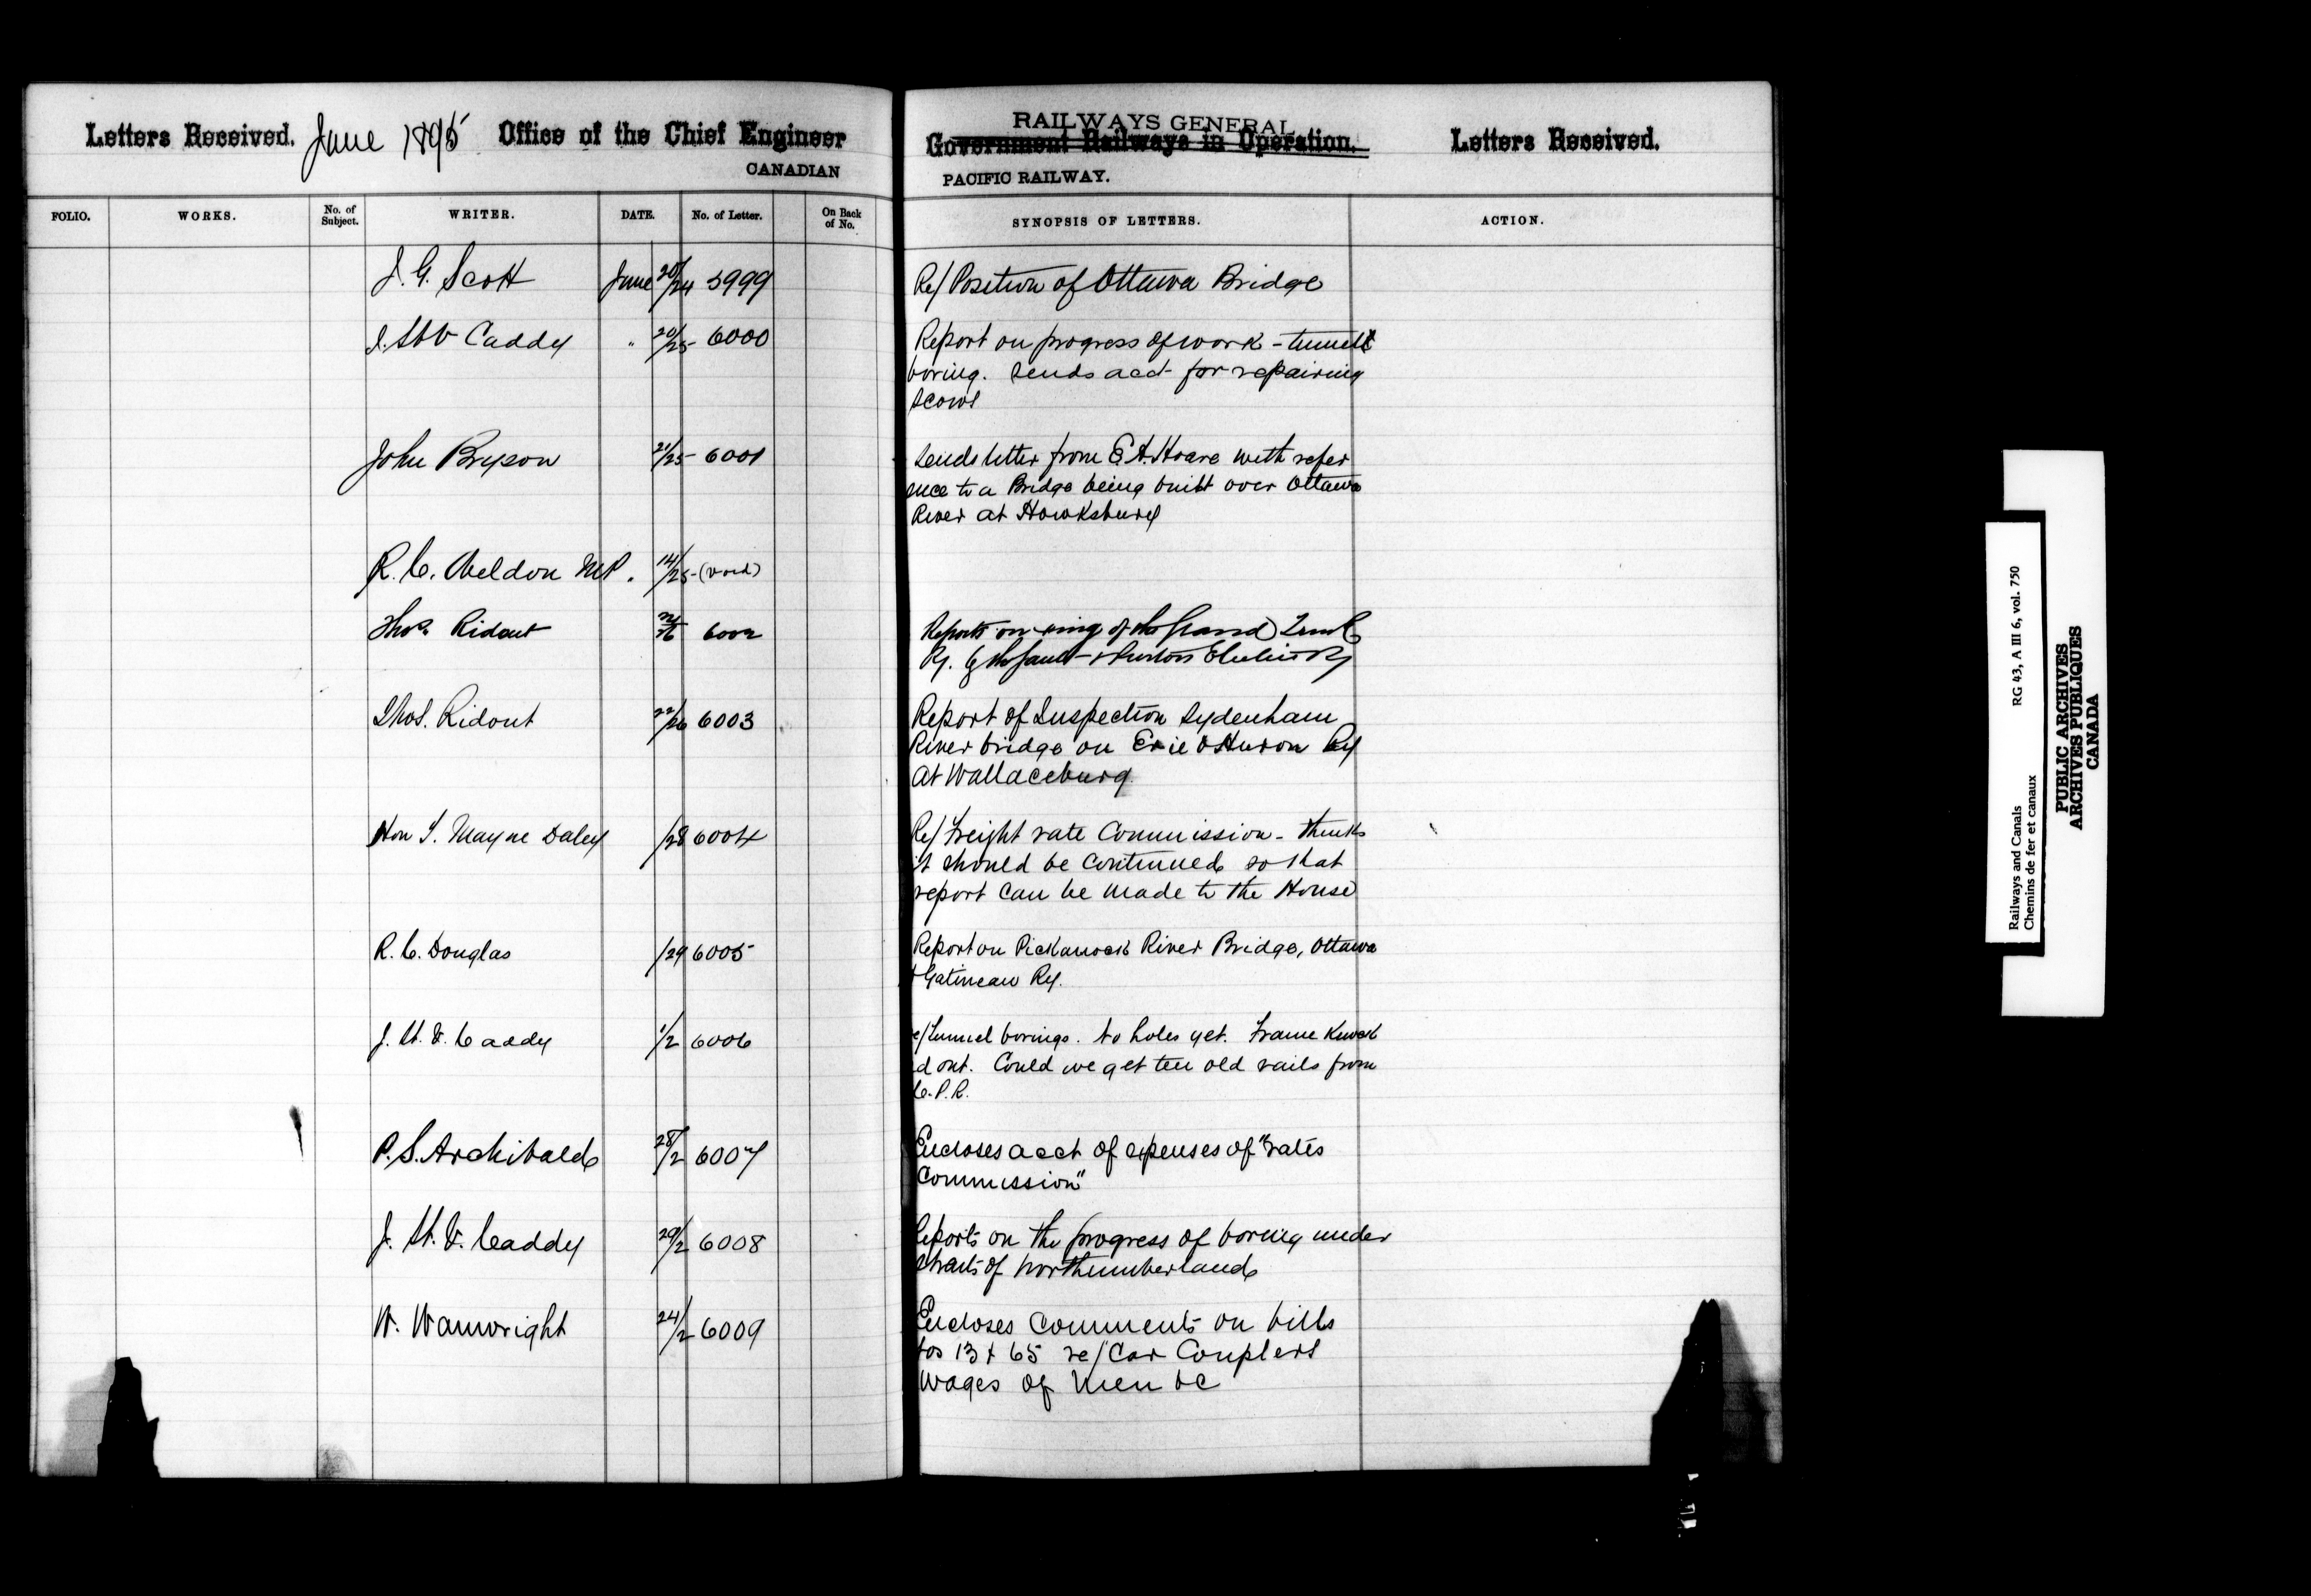 Letters Received. June 1895 Office of the Chief Engineer
CANADIAN
RAILWAYS GENERAL
Government Railways in Operation. Letters Received.
PACIFIC RAILWAY.
FOLIO. WORKS. No. of Subject. WRITER. DATE. No. of Letter. On Back of No. SYNOPSIS OF LETTERS. ACTION.
J. G. Scott June 20/24 5999 Re/ Position of Ottawa Bridge
J. St V Caddy " 20/25 6000 Report on progress of work - tunnel
boring. Sends acct for repairing
scows
John Bryson 21/25 6001 Sends letter from E. A. Hoare with refer
ence to a Bridge being built over Ottawa
River at Hawksbury
R. C. Weldon M.P. 14/25 (void)
Thos. Ridout 22/26 6002 Reports on xing of the Grand Trunk
Ry. by the
Thos. Ridout 22/26 6003 Report of Inspection Sydenham
River bridge on Erie & Huron Ry
at Wallaceburg.
Hon T. Mayne Daley /28 6004 Re/ Freight rate Commission - thinks
it should be continued so that
report can be made to the House
R. C. Douglas /29 6005 Report on Pickanock River Bridge, Ottawa
& Gatineau Ry.
J. St. V. Caddy 1/2 6006 e/ Tunnel borings. No holes yet. Frame knock
d out. Could we get ten old rails from
C.P.R.
P. S. Archibald 28/2 6007 Encloses acct of expenses of "rates
Commission"
J. St. V. Caddy 29/2 6008 Reports on the progress of boring under
Straits of Northumberland
W. Wainwright 24/2 6009 Encloses comments on bills
Nos 13 & 65 re/ Car Couplers
Wages of Men &c
Railways and Canals RG 43, A III 6, vol. 750
Chemins de fer et canaux
PUBLIC ARCHIVES
ARCHIVES PUBLIQUES
CANADA